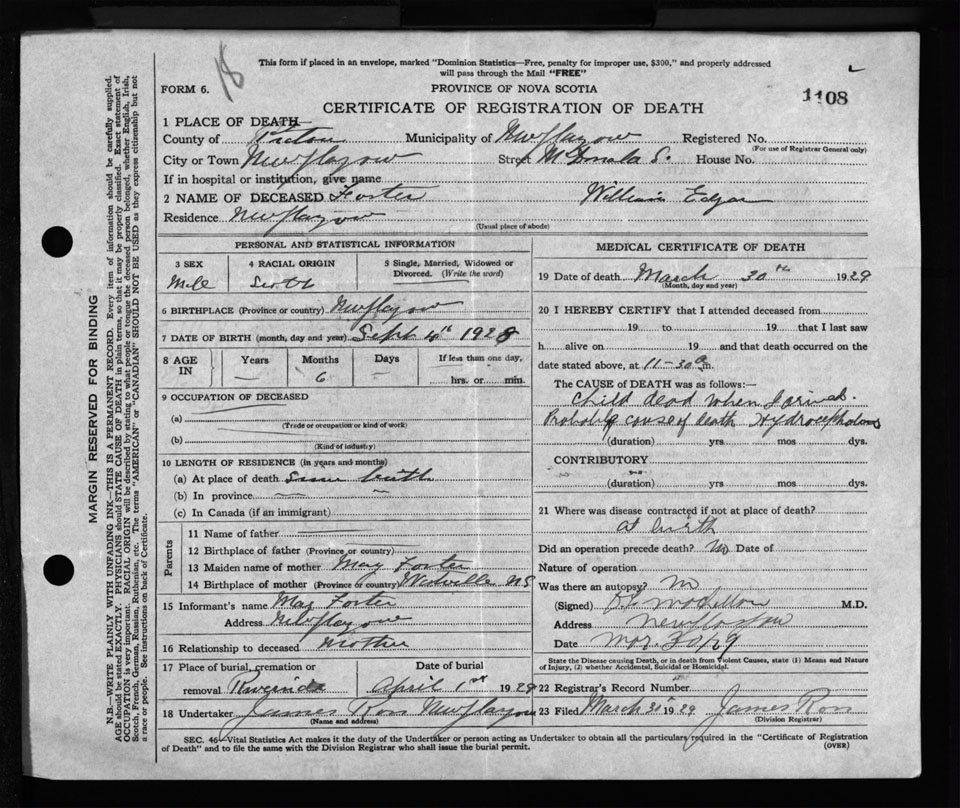 18
This form if placed in an envelope, marked "Dominion Statistics—Free, penalty for improper use, $300," and properly addressed
will pass through the Mail "FREE"
FORM 6.
PROVINCE OF NOVA SCOTIA
1108
CERTIFICATE OF REGISTRATION OF DEATH
1 PLACE OF DEATH—
County of Pictou Municipality of New Glasgow Registered No.
(For use of Registrar General only)
City or Town New Glasgow Street House No.
If in hospital or institution, give name
2 NAME OF DECEASED Foster William Edgar
Residence New Glasgow
(Usual place of abode)
PERSONAL AND STATISTICAL INFORMATION
3 SEX
4 RACIAL ORIGIN
5 Single, Married, Widowed or
Divorced. (Write the word)
Male Scotch
6 BIRTHPLACE (Province or country) New Glasgow
7 DATE OF BIRTH (month, day and year) Sept 4th 1928
8 AGE IN Years Months Days If less than one day,
— 6 — hrs. or min.
9 OCCUPATION OF DECEASED
(a)
(Trade or occupation or kind of work)
(b)
(Kind of industry)
10 LENGTH OF RESIDENCE (in years and months)
(a) At place of death Since birth
(b) In province
(c) In Canada (if an immigrant)
Parents
11 Name of father
12 Birthplace of father (Province or country)
13 Maiden name of mother May Foster
14 Birthplace of mother (Province or country) Westville NS
15 Informant's name May Foster
Address New Glasgow
16 Relationship to deceased Mother
17 Place of burial, cremation or Date of burial
removal Riverside April 1st 1929
18 Undertaker James Ross New Glasgow
(Name and address)
MEDICAL CERTIFICATE OF DEATH
19 Date of death March 30th 1929
(Month, day and year)
20 I HEREBY CERTIFY that I attended deceased from
19 to 19 that I last saw
h alive on 19 and that death occurred on the
date stated above, at 11-30 a m.
The CAUSE OF DEATH was as follows:—
Child dead when I arived.
Probably cause of death Hydrocephalous
(duration) yrs. mos dys.
CONTRIBUTORY
(duration) yrs. mos dys.
21 Where was disease contracted if not at place of death?
at birth
Did an operation precede death? No Date of
Nature of operation
Was there an autopsy? No
(Signed) M.D.
Address New Glasgow
Date Mar. 30/29
State the Disease causing Death, or in death from Violent Causes, state (1) Means and Nature
of Injury, (2) whether Accidental, Suicidal or Homicidal.
22 Registrar's Record Number
23 Filed March 31 1929 James Ross
(Division Registrar)
SEC. 46—Vital Statistics Act makes it the duty of the Undertaker or person acting as Undertaker to obtain all the particulars required in the "Certificate of Registration
of Death" and to file the same with the Division Registrar who shall issue the burial permit.
(OVER)
MARGIN RESERVED FOR BINDING
N.B—WRITE PLAINLY WITH UNFADING INK—THIS IS A PERMANENT RECORD. Every item of information should be carefully supplied.
AGE should be stated EXACTLY. PHYSICIANS should STATE CAUSE OF DEATH in plain terms, so that it may be properly classified. Exact statement of
OCCUPATION is very important. RACIAL ORIGIN will be described by stating to what people or tongue the deceased person belonged, whether English, Irish,
Scotch, French, German, Russian, Ruthenian, etc. The terms "AMERICAN" or "CANADIAN" SHOULD NOT BE USED as they express citizenship but not
a race or people. See instructions on back of Certificate.